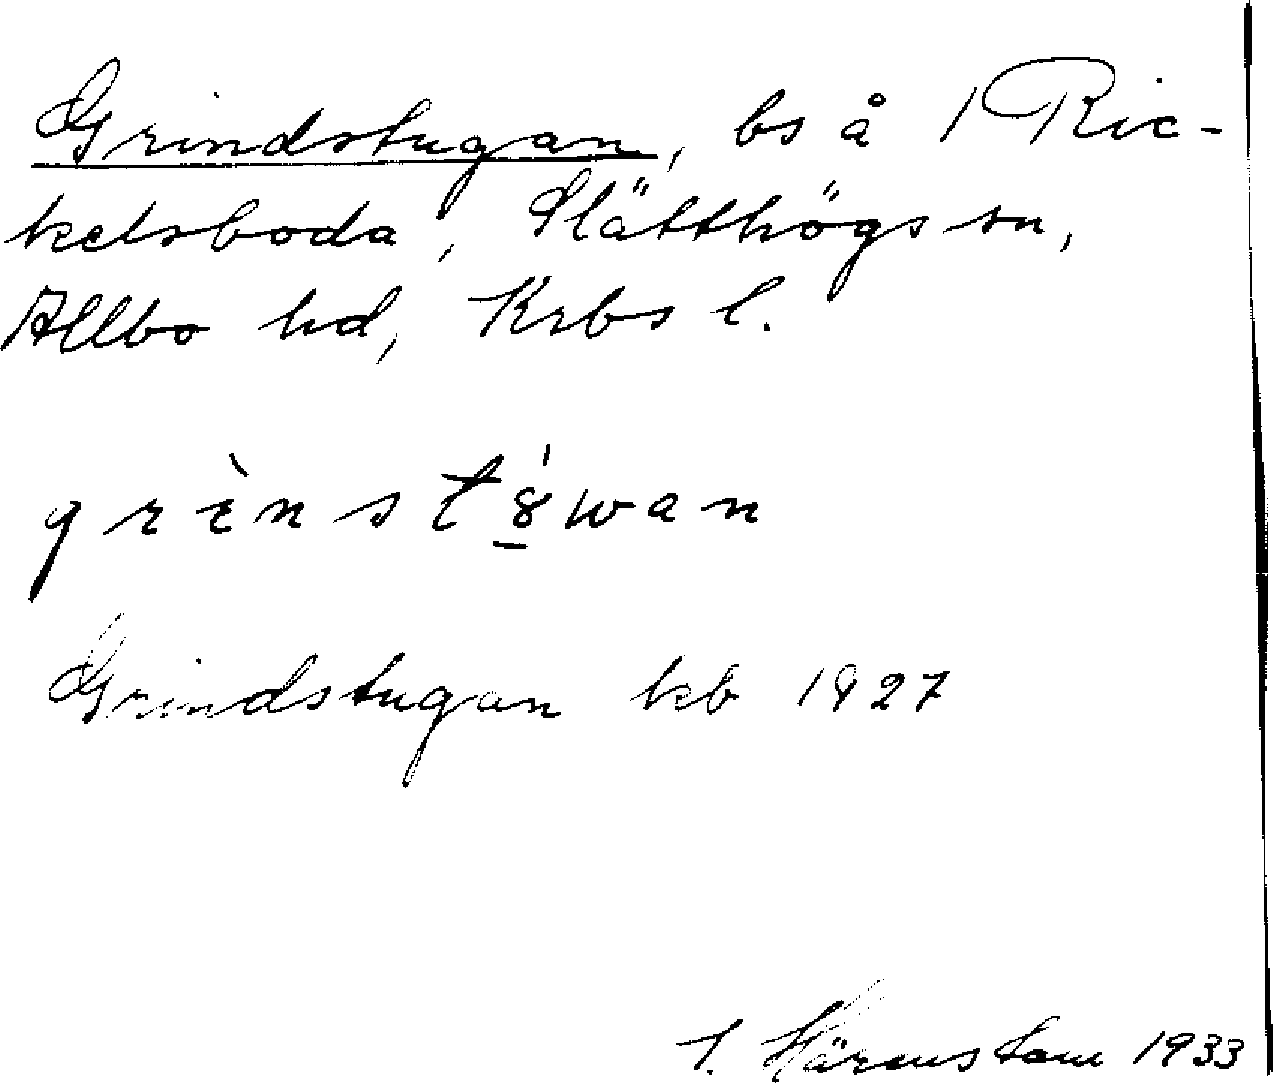 Grindstugan, bs å 1 Ric-
kelsboda, Slätthögs sn,
Allbo hd, Krbs l.
grɪ̀nst8́wan
Grindstugan kb 1927
1933